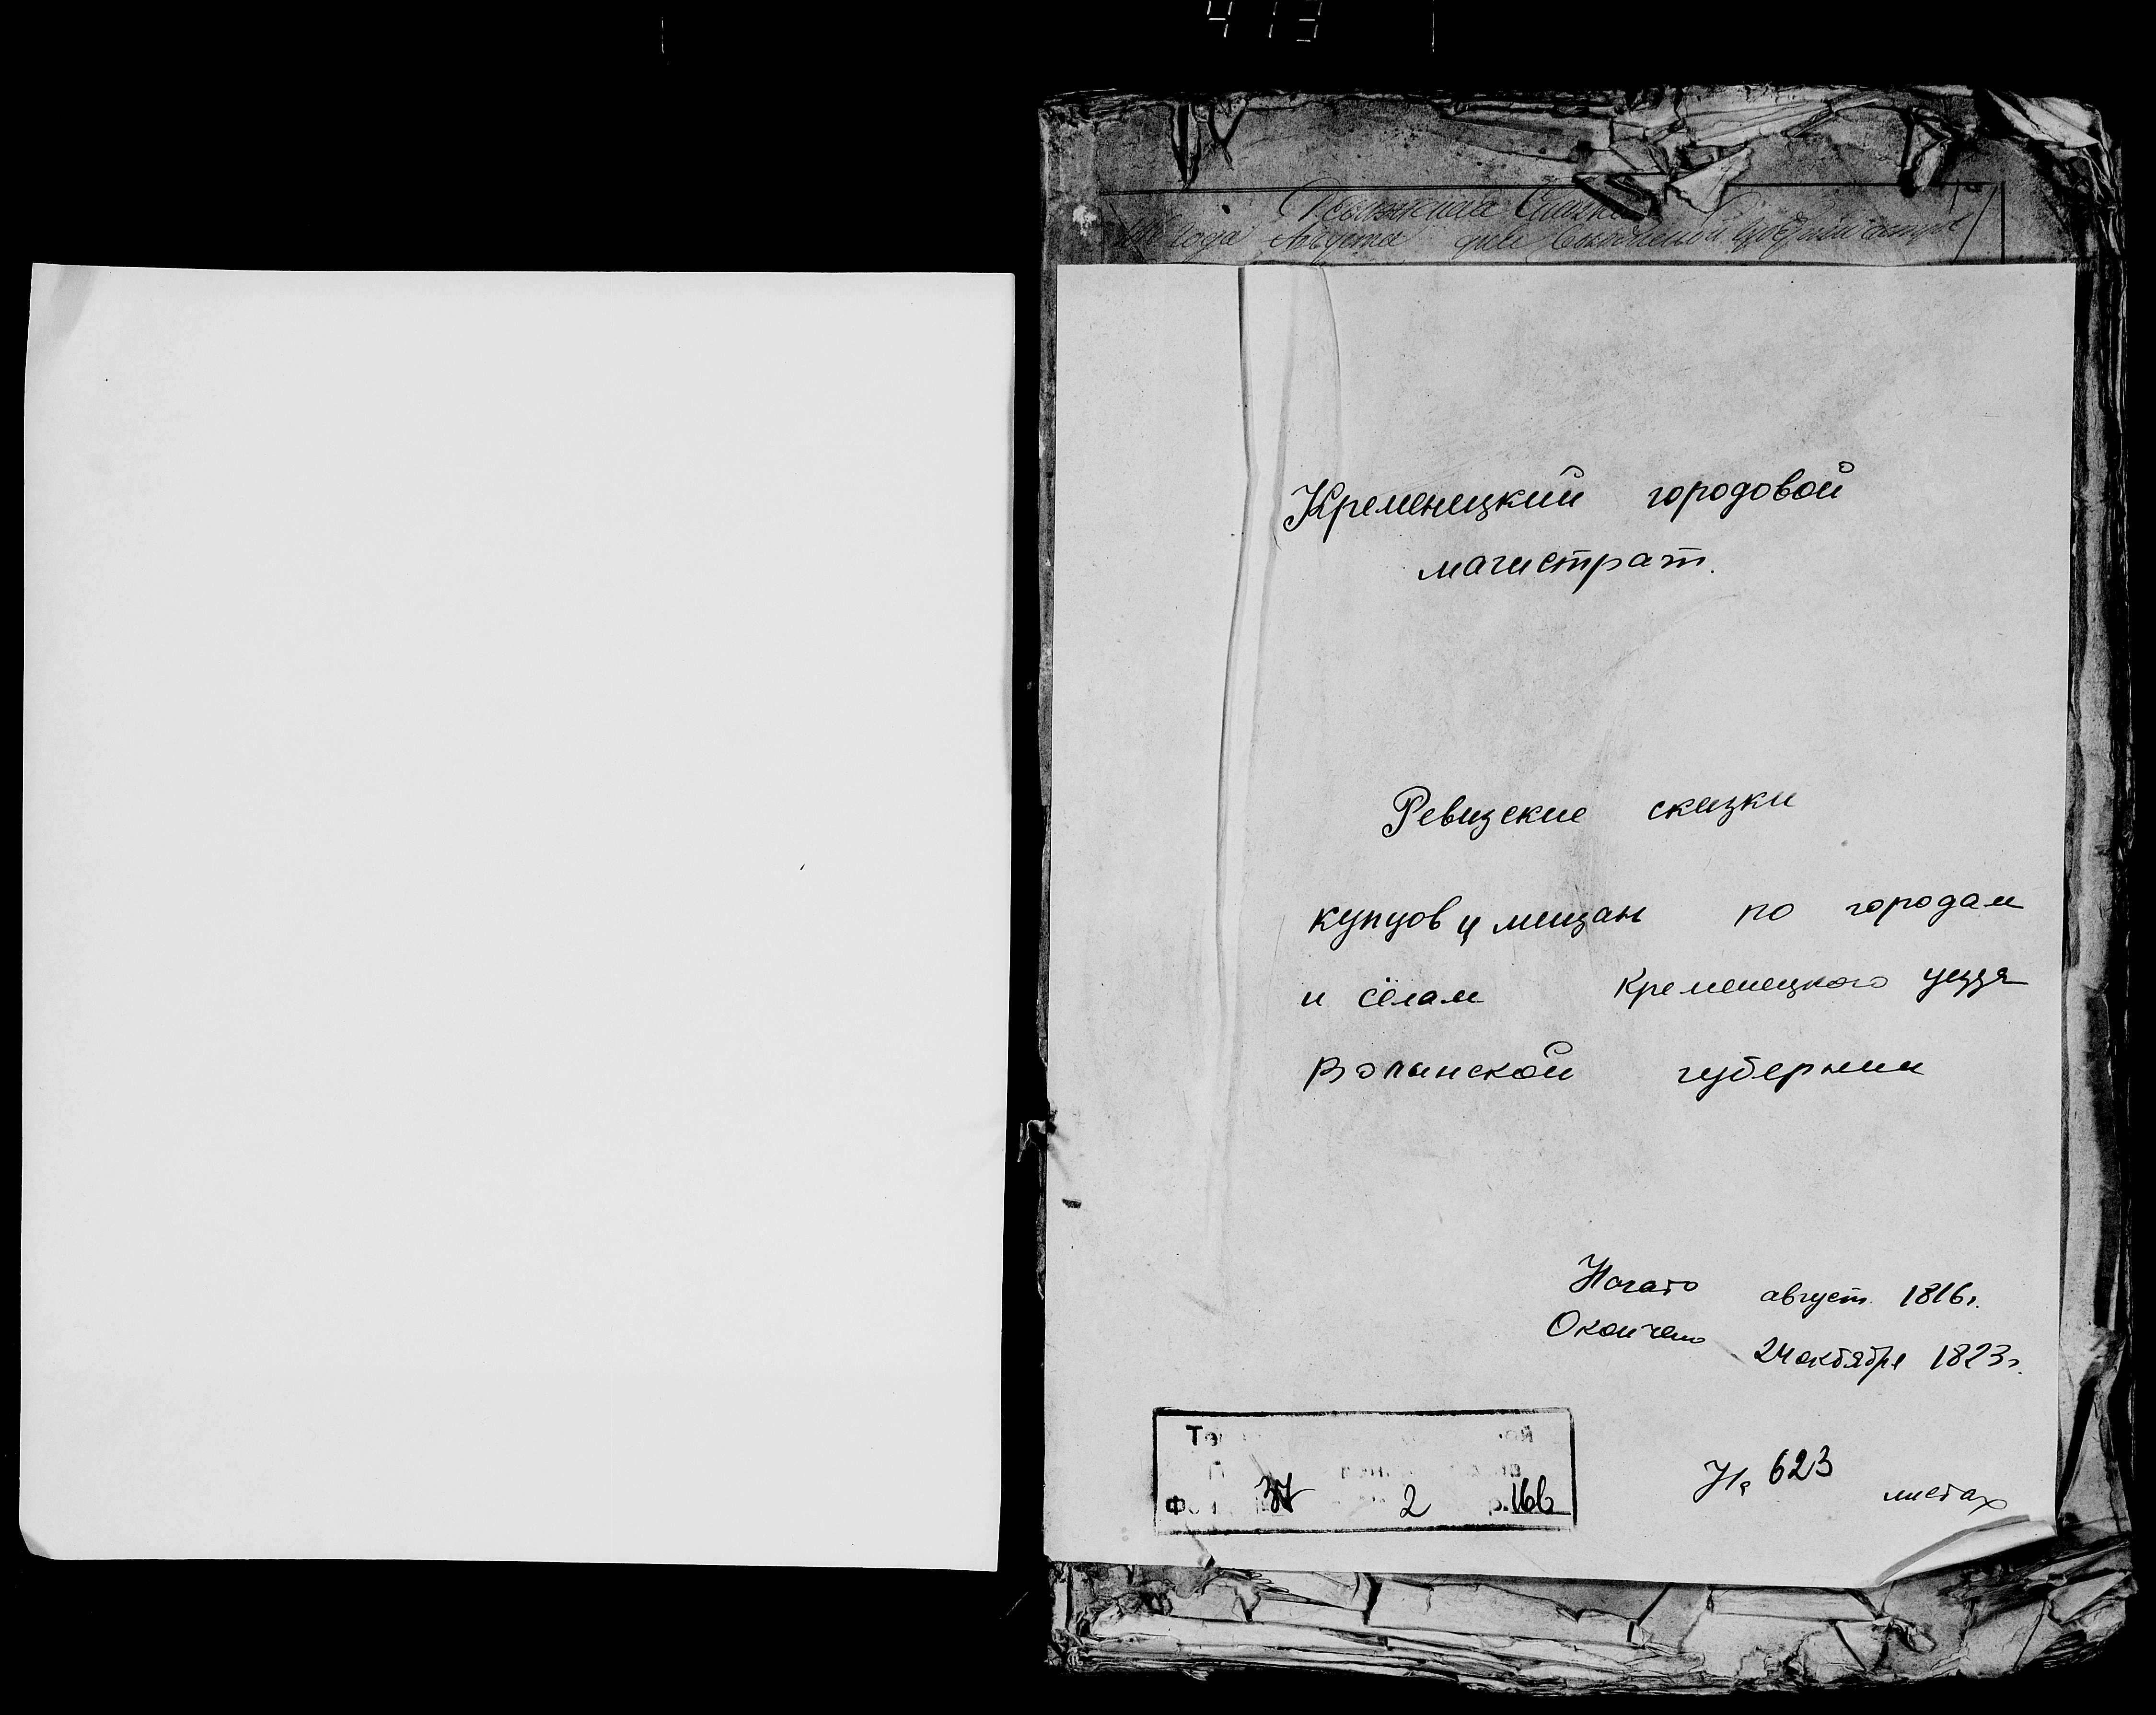 413
года Августа дня
Кременецкий городовой
магистрат.
Ревизские сказки
купцов и мещан по городам
и сёлам Кременецкого уезда
Волынской губернии
Начато август 1816г.
Окончено
24 октября 1823г.
37 2 16в
На 623 листах